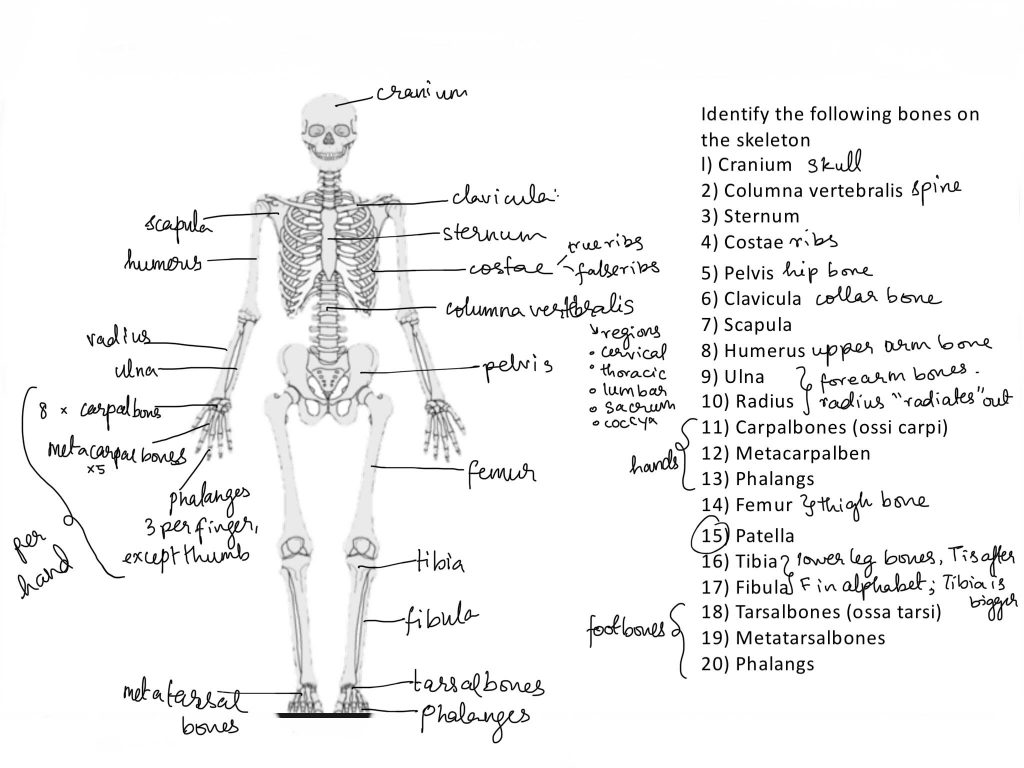 cranium
clavicula
scapula
sternum
true ribs
humerus
costae
false ribs
columna vertebralis
regions
• cervical
• thoracic
• lumbar
• sacrum
• coccyx
radius
ulna
pelvis
8 x carpal bones
metacarpal bones
x5
phalanges
3 per finger,
except thumb
per
hand
femur
tibia
fibula
metatarsal
bones
tarsalbones
phalanges
Identify the following bones on
the skeleton
I) Cranium skull
2) Columna vertebralis spine
3) Sternum
4) Costae ribs
5) Pelvis hip bone
6) Clavicula collar bone
7) Scapula
8) Humerus upper arm bone
9) Ulna } forearm bones.
10) Radius } radius "radiates" out
11) Carpalbones (ossi carpi)
12) Metacarpalben
hands
13) Phalangs
14) Femur } thigh bone
15) Patella
16) Tibia } lower leg bones, T is after
17) Fibula } F in alphabet; Tibia is
bigger
18) Tarsalbones (ossa tarsi)
footbones
19) Metatarsalbones
20) Phalangs